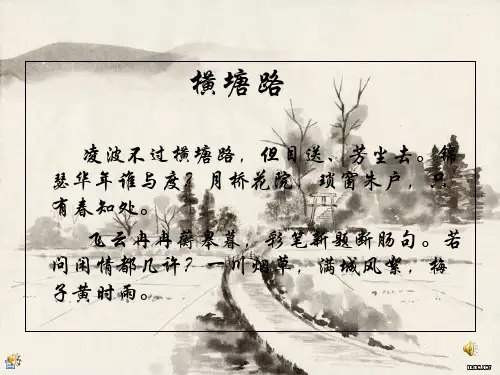 横塘路
凌波不过横塘路，但目送、芳尘去。锦
瑟华年谁与度？月桥花院，琐窗朱户，只
有春知处。
飞云冉冉蘅皋暮，彩笔新题断肠句。若
问闲情都几许？一川烟草，满城风絮，梅
子黄时雨。